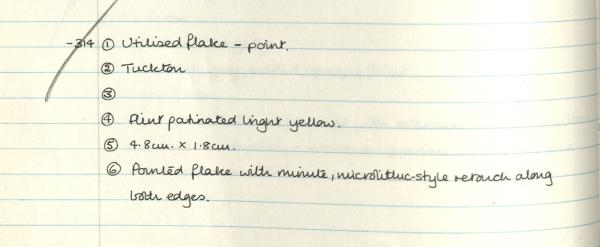 -314 ① Utilised flake - point.
② Tuckton
③
④ Flint patinated linght yellow.
⑤ 4.8cm. x 1.8cm.
⑥ Pointed flake with minute, microlithic-style retouch along
both edges.